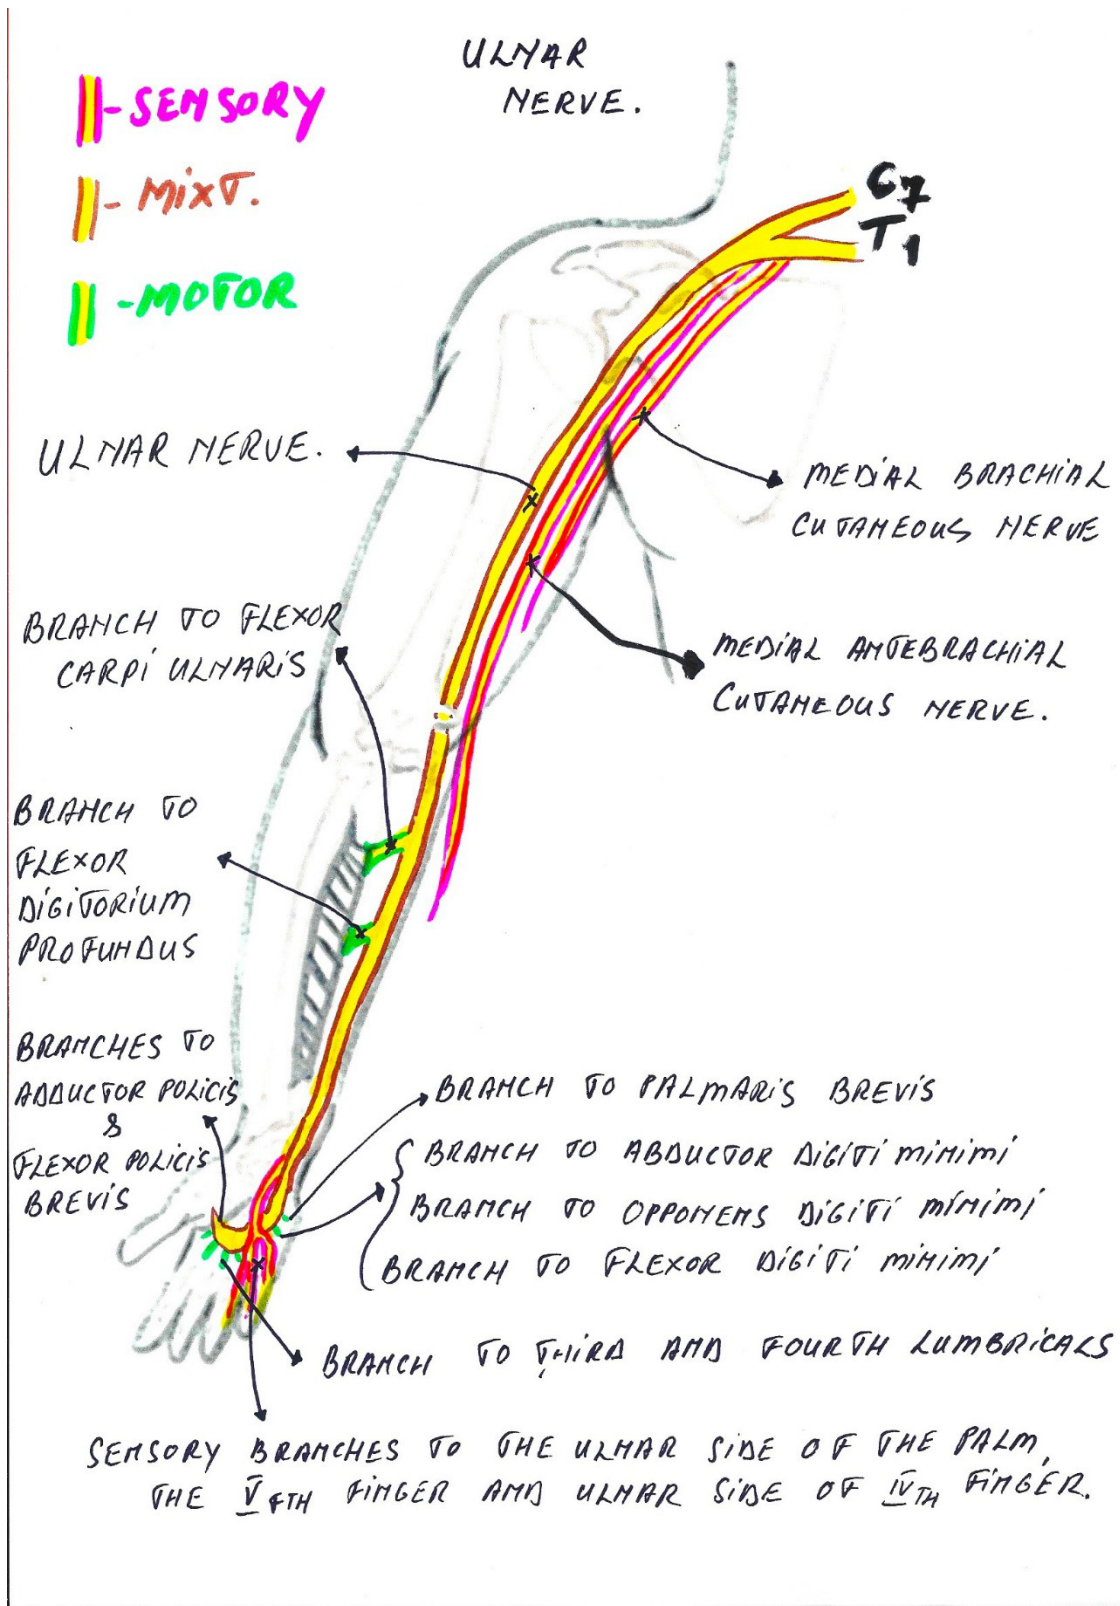 ULNAR
NERVE.
- SENSORY
- MIXT.
- MOTOR
C7
T1
ULNAR NERVE.
MEDIAL BRACHIAL
CUTANEOUS NERVE
BRANCH TO FLEXOR
CARPI ULNARIS
MEDIAL ANTEBRACHIAL
CUTANEOUS NERVE.
BRANCH TO
FLEXOR
DIGITORIUM
PROFUNDUS
BRANCHES TO
ADDUCTOR POLICIS
&
FLEXOR POLICIS
BREVIS
BRANCH TO PALMARIS BREVIS
BRANCH TO ABDUCTOR DIGITI MINIMI
BRANCH TO OPPONENS DIGITI MINIMI
BRANCH TO FLEXOR DIGITI MINIMI
BRANCH TO THIRD AND FOURTH LUMBRICALS
SENSORY BRANCHES TO THE ULNAR SIDE OF THE PALM,
THE V FTH FINGER AND ULNAR SIDE OF IV TH FINGER.